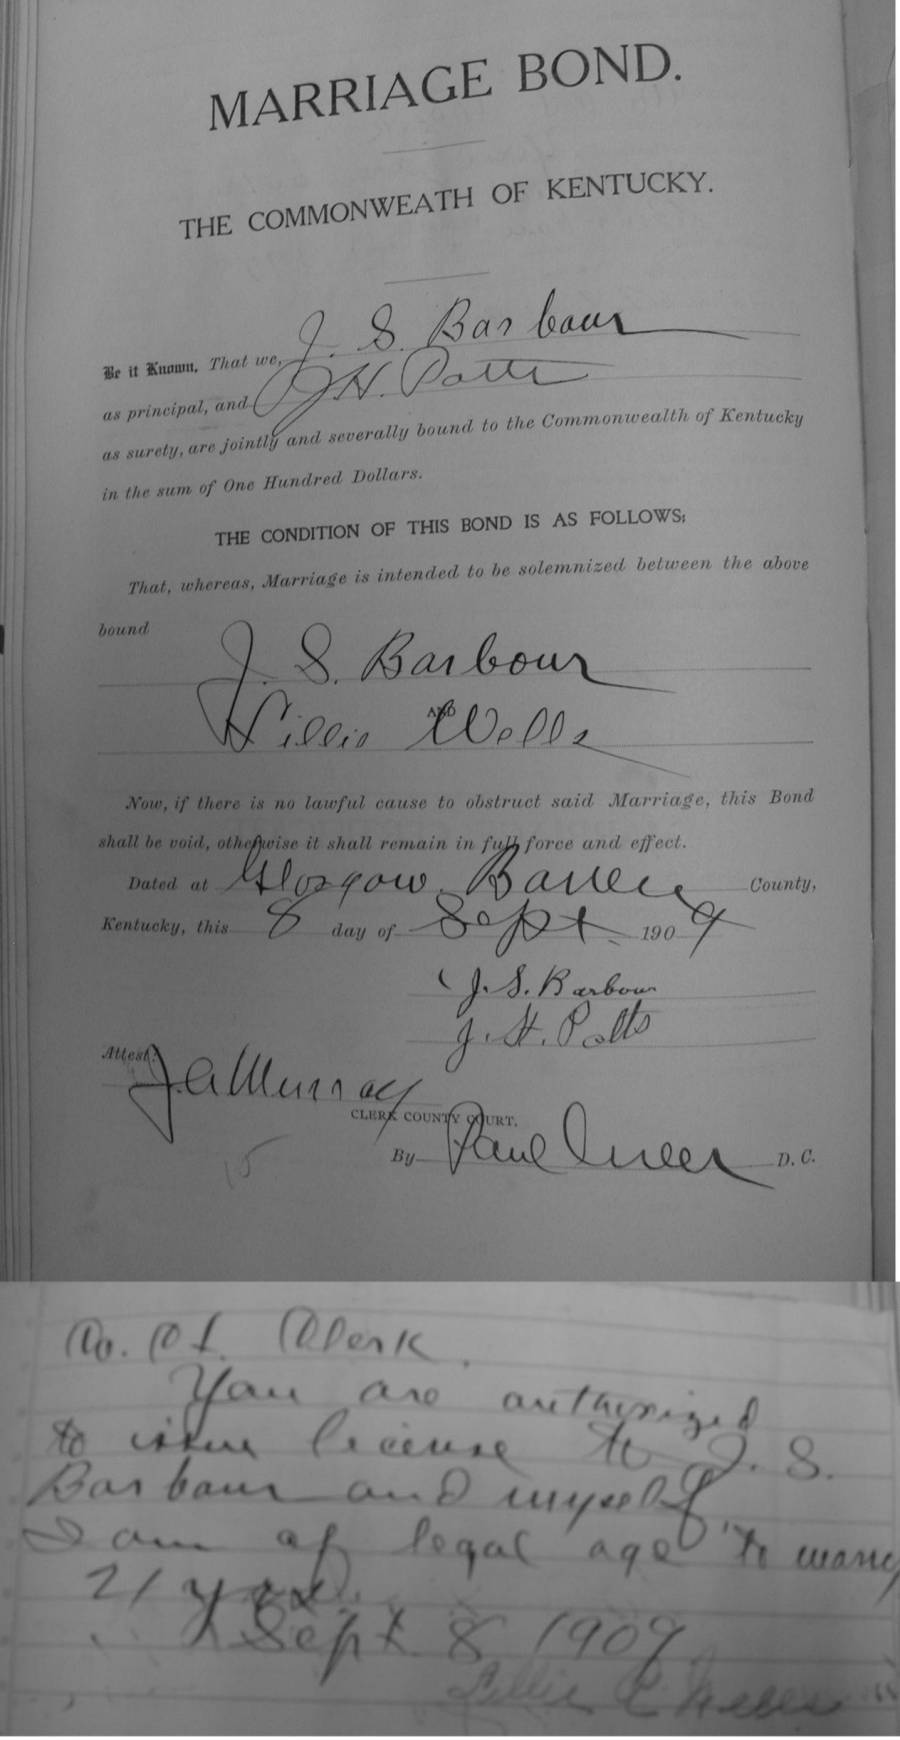 MARRIAGE BOND.
THE COMMONWEATH OF KENTUCKY.
Be it Known, That we, J. S. Barbour
as principal, and J H. Potts
as surety, are jointly and severally bound to the Commonwealth of Kentucky
in the sum of One Hundred Dollars.
THE CONDITION OF THIS BOND IS AS FOLLOWS:
That, whereas, Marriage is intended to be solemnized between the above
bound
J. S. Barbour
AND
Lillie Wells
Now, if there is no lawful cause to obstruct said Marriage, this Bond
shall be void, otherwise it shall remain in full force and effect.
Dated at Glasgow. Barren County,
Kentucky, this 8 day of Sept. 1909
J. S. Barbour
J. H. Potts
Attest:
J. A Murray
CLERK COUNTY COURT.
By Paul Greer D. C.
15
Co. Ct. Clerk.
You are authorized
to issue license to J. S.
Barbour and myself
I am of legal age to marry
21 yrs.
Sept 8 1909
Lillie Wells